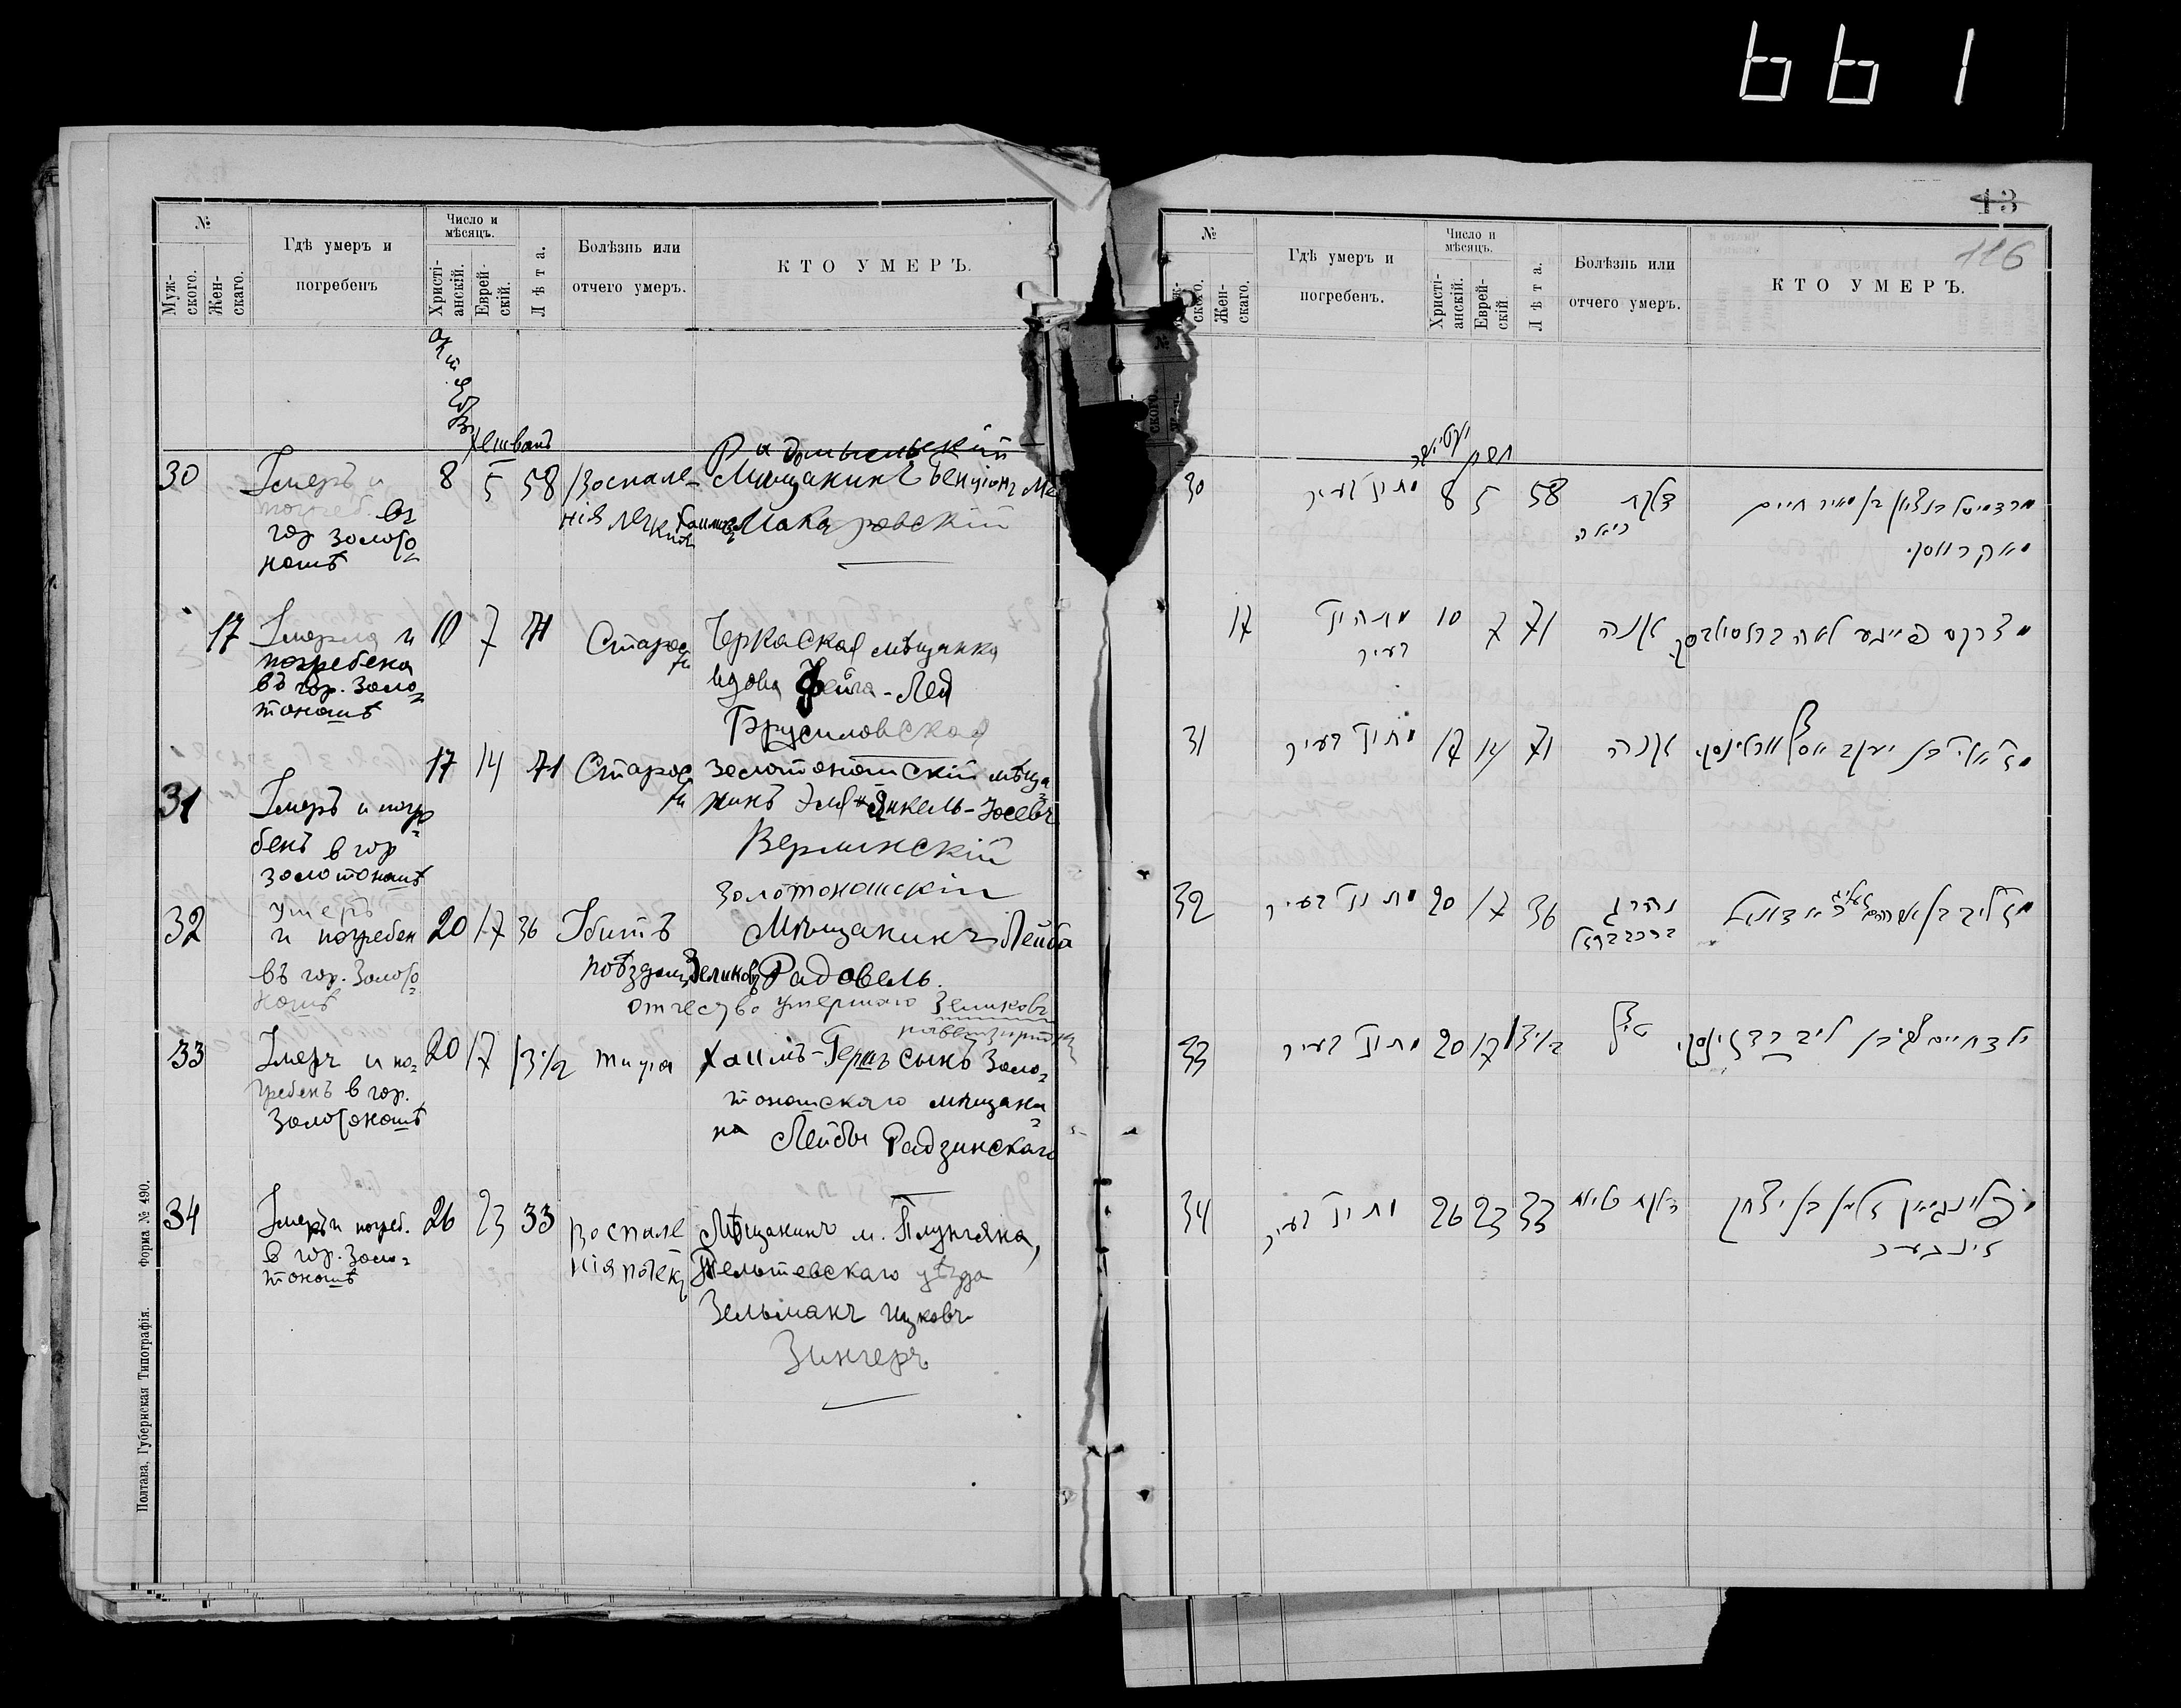 661
№
Муж-
ского.
Жен-
скаго.
Гдѣ умеръ и
погребенъ
Число и
мѣсяцъ.
Христі-
анскій.
Еврей-
скій.
Лѣта.
Болѣзнь или
отчего умеръ.
КТО УМЕРЪ.
Октябрь
Хешванъ
30
Умеръ и
погреб. въ
гор Золото
ношѣ
8
5
58
Воспале-
нія легкихъ
Радомысльскій
Мѣщанинъ Бенціонъ
Хаимовъ Макаровскій
17
Умерла и
погребена
въ гор. Золо
тоношѣ
10
7
71
Старос
ти
Черкаская мѣщанка
вдова Фейга-Лея
Брусиловская
31
Умеръ и погре
бенъ в гор
Золотоношѣ
17
14
71
Старос
ти
Золотоношскій мѣща
нинъ Эля Янкель-Іосевъ
Верлинскій
32
Умеръ
и погребен
въ гор. Золото
ношѣ
20
17
36
Убитъ
поѣздомъ
Золотоношскій
Мѣщанинъ Лейба
Зеликовъ Радовель.
отчество умершаго Зеликовъ
33
Умеръ и по-
гребенъ в гор.
Золотоношѣ
20
17
13 1/2
тифа
Хаимъ-Гершъ сынъ Золо
тоношскаго мѣщани
на Лейбы Радзинскаго
34
Умеръ и погреб.
в гор. Золо
тоношѣ
26
23
33
Воспале
нія почекъ
Мѣщанинъ м. Плунгяна,
Тельшевскаго уѣзда
Зельманъ Ицковъ
Зингеръ
Полтава, Губернская Типографія. Форма № 490.
13
116
№
ского.
Жен-
скаго.
Гдѣ умеръ и
погребенъ.
Число и
мѣсяцъ.
Христі-
анскій.
Еврей-
скій.
Лѣта.
Болѣзнь или
отчего умеръ.
КТО УМЕРЪ.
30
8
5
58
דלקת
ריאה
בן מאיר חיים
מאקרווסקי
17
10
7
71
זקנה
פייגע לאה ברוסילאווסקי
31
17
14
71
זקנה
בן יעקב יוסף
32
20
17
36
נהרג
33
20
17
חיים
ליב רדזינסקי
34
26
23
33
דלקת
זלמן בן יצחק
זינגער